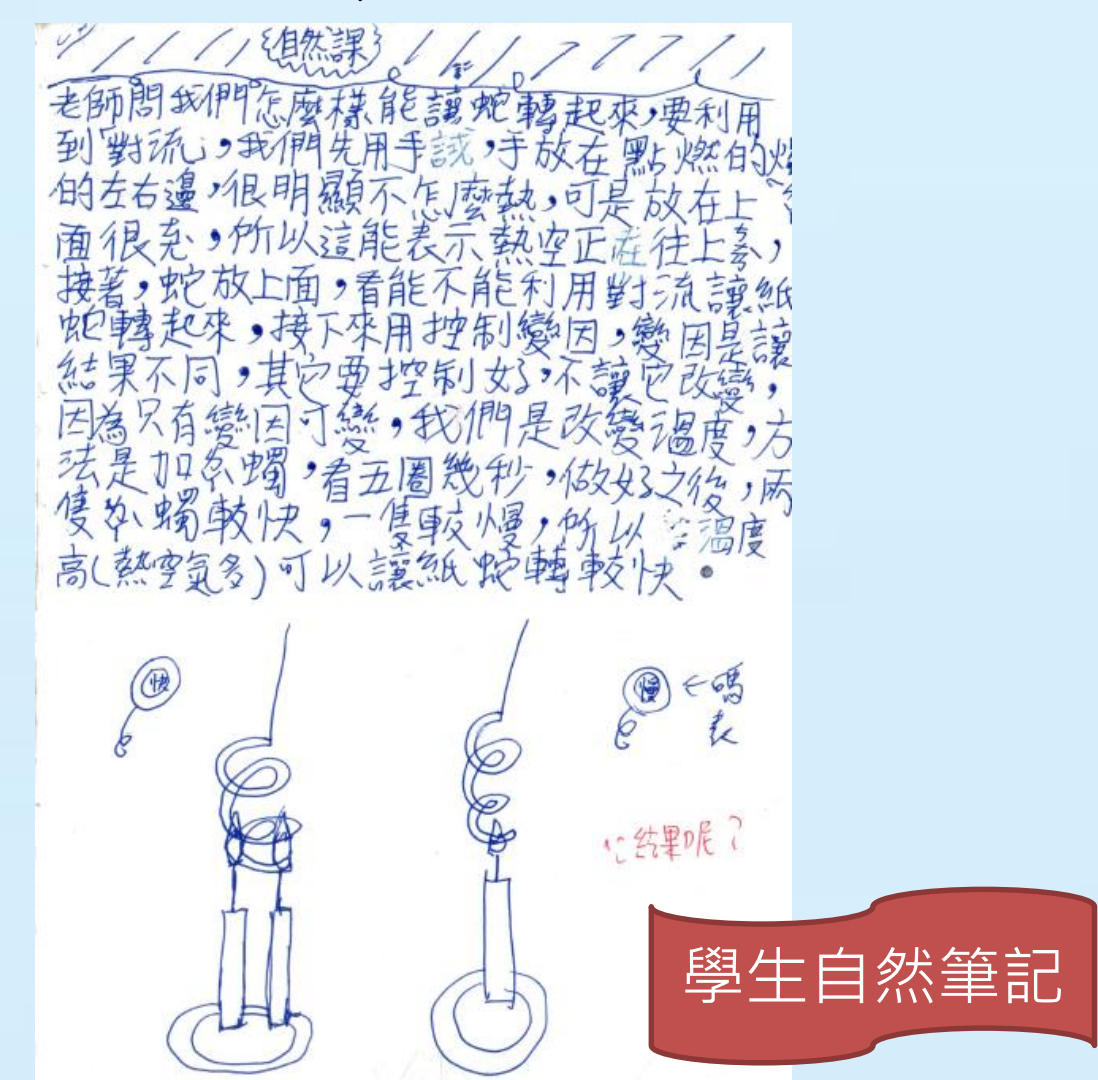 自然課
老師問我們怎麼樣能讓蛇轉起來，要利用
到「對流」，我們先用手試，手放在點燃的
的左右邊，很明顯不怎麼熱，可是放在上
面很，所以這能表示熱空正在往上，
接著，蛇放上面，看能不能利用對流讓紙
蛇轉起來，接下來用控制變因，變因是讓
結果不同，其它要控制好，不讓它改變，
因為只有變因可變，我們是改變溫度，方
法是加蠋，看五圈幾秒，做好之後，兩
隻蠋較快，一隻較慢，所以溫度
高(熱空氣多)可以讓紙蛇轉較快。
快
慢
←嗎
表
結果呢？
學生自然筆記